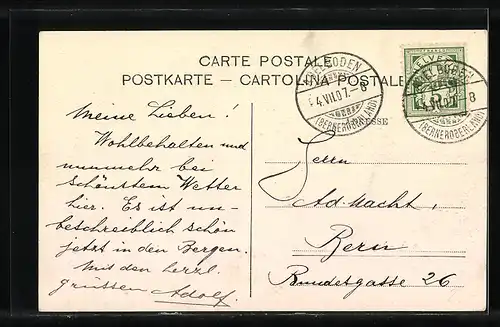 CARTE POSTALE
POSTKARTE – CARTOLINA POSTALE
ADELBODEN
4.VII.07.– 8
(BERNEROBERLAND)
ADRESSE
HELVETIA
5
ADELBODEN
4.VII.07.– 8
(BERNEROBERLAND)
Meine Lieben!
Wohlbehalten und
nunmehr bei
schönstem Wetter
hier. Es ist un-
beschreiblich schön
jetzt in den Bergen.
Mit den herzl.
grüssen Adolf.
Herrn
Ad. Macht,
Bern
Bundesgasse 26